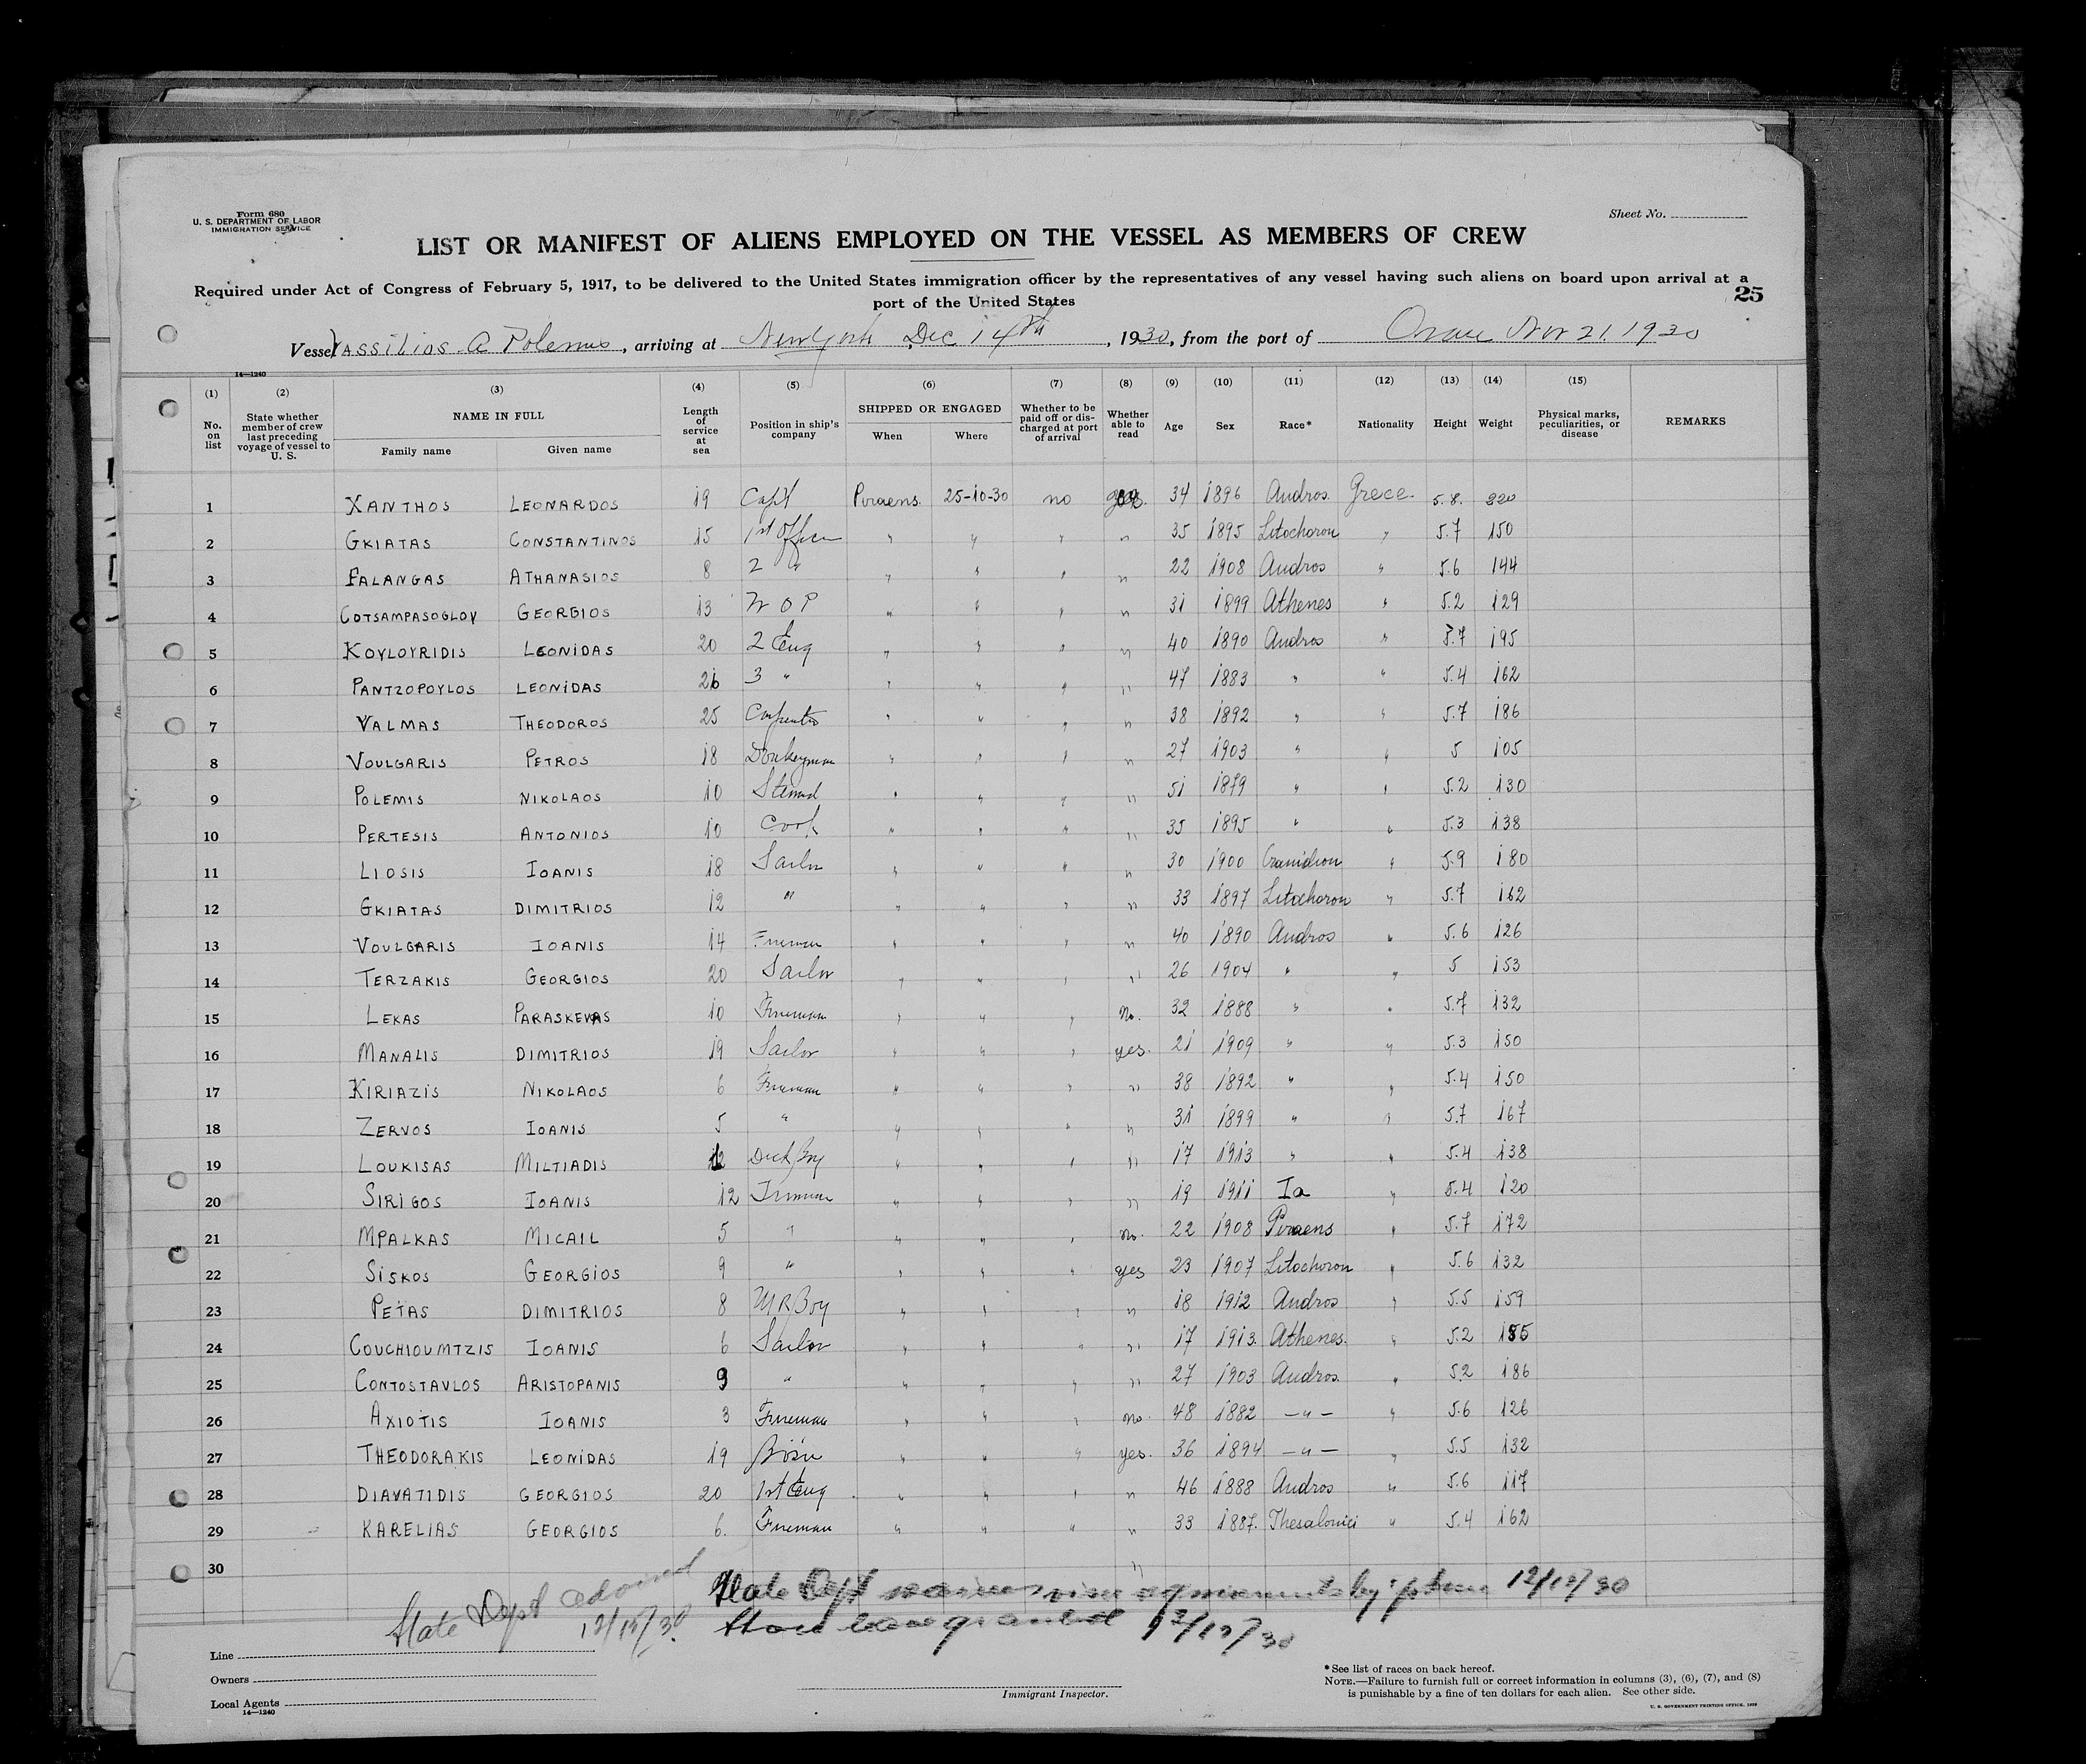 Form 680
U. S. DEPARTMENT OF LABOR
IMMIGRATION SERVICE
Sheet No.
LIST OR MANIFEST OF ALIENS EMPLOYED ON THE VESSEL AS MEMBERS OF CREW
Required under Act of Congress of February 5, 1917, to be delivered to the United States immigration officer by the representatives of any vessel having such aliens on board upon arrival at a
port of the United States
25
Vessel Vassilios A Polemis, arriving at New York Dec 14th, 1930, from the port of Oran Nov 21. 1930
14—1240
(1) (2) (3) (4) (5) (6) (7) (8) (9) (10) (11) (12) (13) (14) (15)
No. on list State whether member of crew last preceding voyage of vessel to U. S. NAME IN FULL Length of service at sea Position in ship's company SHIPPED OR ENGAGED Whether to be paid off or discharged at port of arrival Whether able to read Age Sex Race* Nationality Height Weight Physical marks, peculiarities, or disease REMARKS
Family name Given name When Where
1 XANTHOS LEONARDOS 19 Capt Piraeus 25-10-30 no yes. 34 1896 Andros. Grece 5.8. 220
2 GKIATAS CONSTANTINOS 15 1st Officer " " " " 35 1895 Litochoron " 5.7 150
3 FALANGAS ATHANASIOS 8 2 " " " " " 22 1908 Andros " 5.6 144
4 COTSAMPASOGLOV GEORGIOS 13 W O P " " " " 31 1899 Athenes " 5.2 129
5 KOYLOYRIDIS LEONIDAS 20 2 Eng " " " " 40 1890 Andros " 5.7 195
6 PANTZOPOYLOS LEONIDAS 26 3 " " " " " 47 1883 " " 5.4 162
7 VALMAS THEODOROS 25 Carpenter " " " " 38 1892 " " 5.7 186
8 VOULGARIS PETROS 18 Donkeyman " " " " 27 1903 " " 5 105
9 POLEMIS NIKOLAOS 10 Steward " " " " 51 1879 " " 5.2 130
10 PERTESIS ANTONIOS 10 Cook " " " " 35 1895 " " 5.3 138
11 LIOSIS IOANIS 18 Sailor " " " " 30 1900 Cranidion " 5.9 180
12 GKIATAS DIMITRIOS 12 " " " " " 33 1897 Litochoron " 5.7 162
13 VOULGARIS IOANIS 14 Fireman " " " " 40 1890 Andros " 5.6 126
14 TERZAKIS GEORGIOS 20 Sailor " " " " 26 1904 " " 5 153
15 LEKAS PARASKEVAS 10 Fireman " " " No. 32 1888 " " 5.7 132
16 MANALIS DIMITRIOS 19 Sailor " " " yes. 21 1909 " " 5.3 150
17 KIRIAZIS NIKOLAOS 6 Fireman " " " " 38 1892 " " 5.4 150
18 ZERVOS IOANIS 5 " " " " " 31 1899 " " 5.7 167
19 LOUKISAS MILTIADIS 12 Deck Boy " " " " 17 1913 " " 5.4 138
20 SIRIGOS IOANIS 12 Fireman " " " " 19 1911 Ia " 5.4 120
21 MPALKAS MICAIL 5 " " " " no. 22 1908 Piraeus " 5.7 172
22 SISKOS GEORGIOS 9 " " " " yes 23 1907 Litochoron " 5.6 132
23 PETAS DIMITRIOS 8 M R Boy " " " " 18 1912 Andros " 5.5 159
24 COUCHIOUMTZIS IOANIS 6 Sailor " " " " 17 1913. Athenes. " 5.2 155
25 CONTOSTAVLOS ARISTOPANIS 9 " " " " " 27 1903 Andros. " 5.2 186
26 AXIOTIS IOANIS 3 Fireman " " " no. 48 1882 —"— " 5.6 126
27 THEODORAKIS LEONIDAS 19 " " " yes. 36 1894 —"— " 5.5 132
28 DIAVATIDIS GEORGIOS 20 1st Eng " " " " 46 1888 Andros " 5.6 117
29 KARELIAS GEORGIOS 6. Fireman " " " " 33 1887. Thesalonici " 5.4 162
30 "
State Dept advised
12/15/30
State Dept waives visa by phone 12/12/30
Shore leave granted 12/12/30
Line
Owners
Local Agents
14—1240
Immigrant Inspector.
*See list of races on back hereof.
NOTE.—Failure to furnish full or correct information in columns (3), (6), (7), and (8)
is punishable by a fine of ten dollars for each alien. See other side.
U. S. GOVERNMENT PRINTING OFFICE, 1929